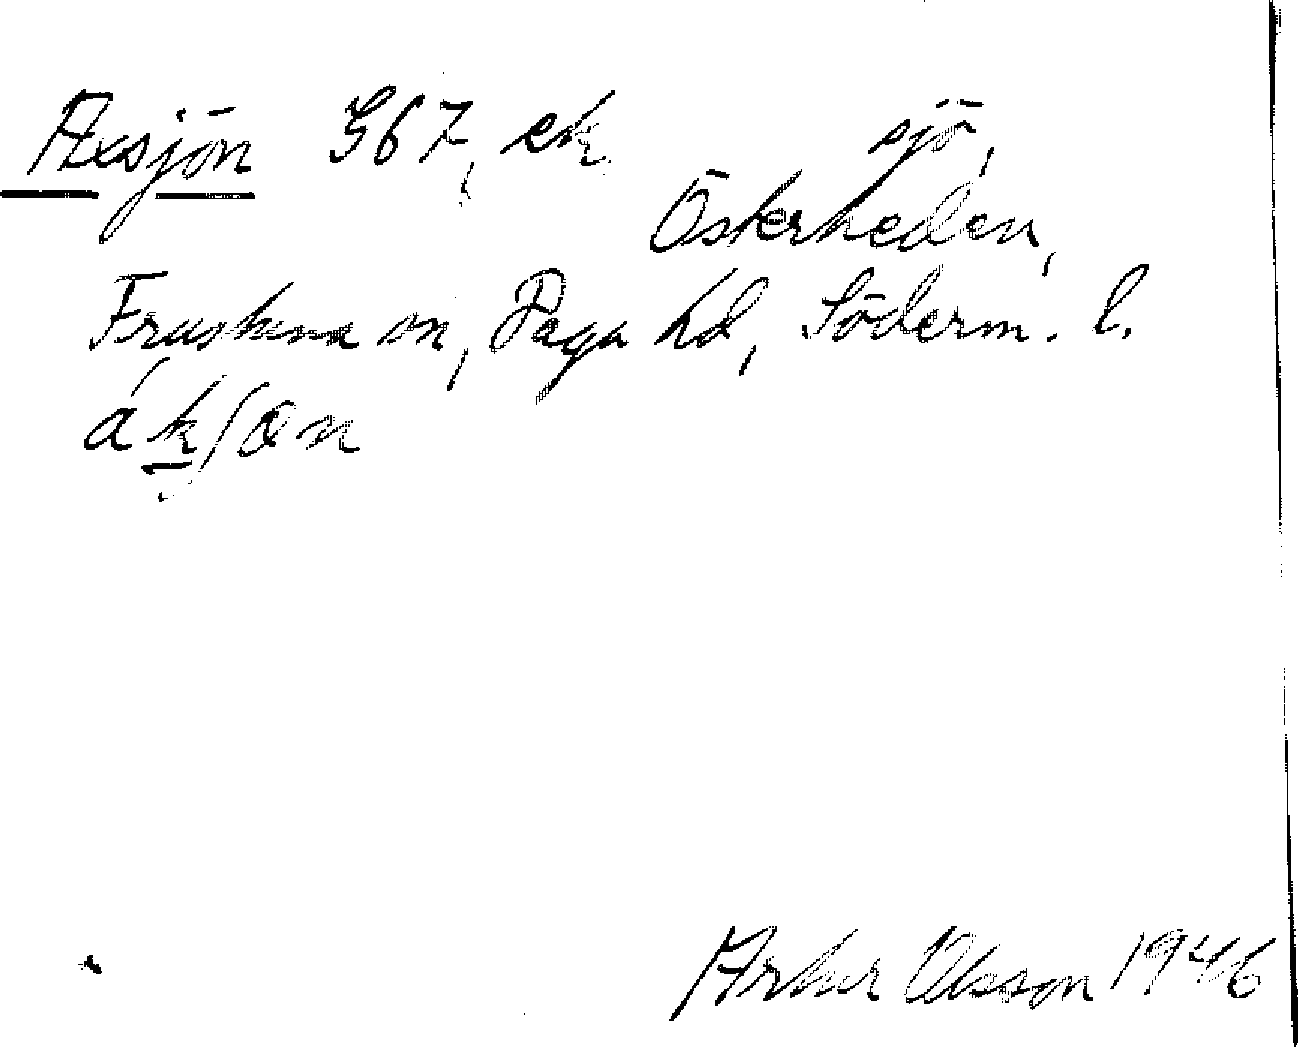 Axsjön 567, ek sjö,
Österheden,
Frustuna sn, Daga hd, Söderm. l.
áksøn
Arthur Olsson 1946